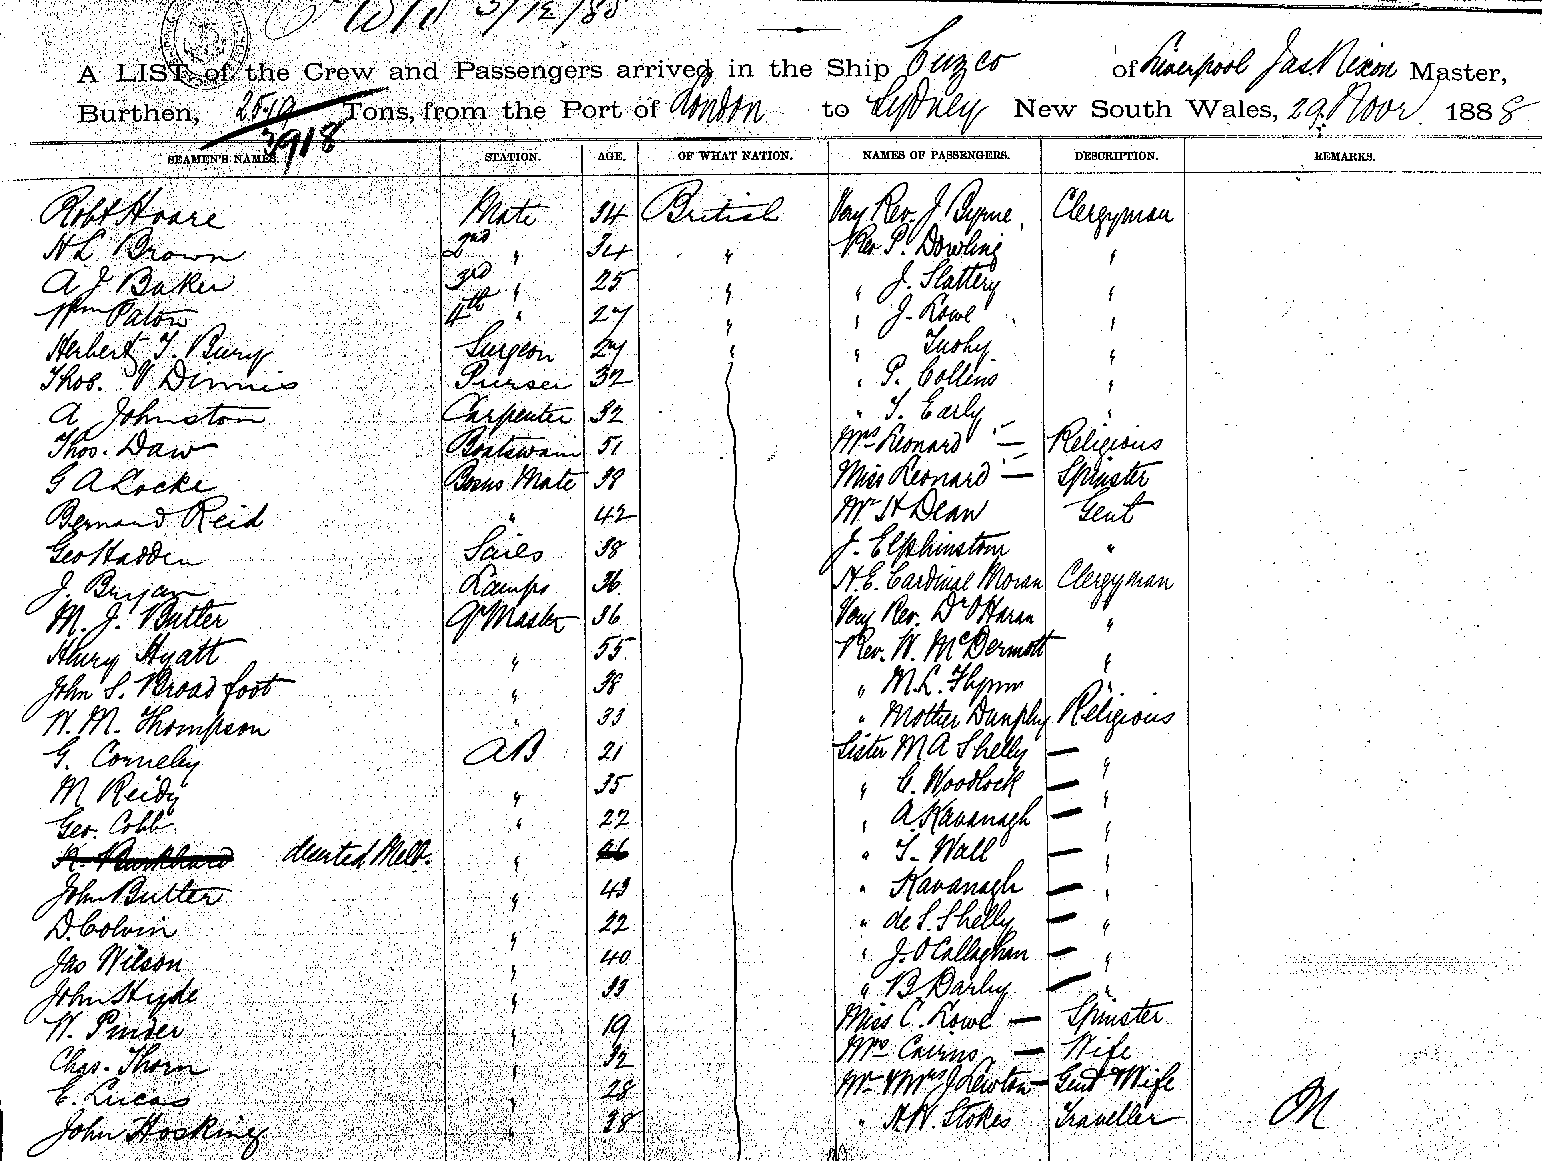 3/12/88
A LIST of the Crew and Passengers arrived in the Ship Cuzco of Liverpool Jas Nixon Master,
Burthen, 2519 Tons, from the Port of London to Sydney New South Wales, 29 Novr 1888
3918
SEAMEN'S NAMES. STATION. AGE. OF WHAT NATION. NAMES OF PASSENGERS. DESCRIPTION. REMARKS.
Robt Hoare Mate 34 British Very Rev. J Byrne Clergyman
H L Brown 2nd " 34 " Rev P. Dowling "
A J Baker 3rd " 25 " " J. Slattery "
Wm Paton 4th " 27 " " J. Lowe "
Herbert T. Bury Surgeon 27 " " Tuohy "
Thos. V Dinnis Purser 32 " P. Collins "
A Johnston Carpenter 32 " T. Early "
Thos. Daw Boatswain 51 Mrs Leonard — Religious
G A Locke Bosns Mate 38 Miss Leonard — Spinster
Bernard Reid " 42 Mr H Dean Gent
Geo Hadden Sails 38 J. Elphinstone "
J. Bryan Lamps 36 H. E. Cardinal Moran Clergyman
M. J. Butler Qr Master 36 Very Rev. Dr O'Haran "
Henry Hyatt " 55 Rev. W. McDermott "
John S. Broadfoot " 38 " M. L. Flynn "
W. M. Thompson " 33 " Mother Dunphy Religious
G. Corneley AB 21 Sister M A Shelly — "
M Reidy " 35 " C. Woodlock — "
Geo. Cobb " 22 " A. Kavanagh — "
K. Burkhard deserted Melb. " 26 " T. Wall — "
John Butler " 43 " Kavanagh — "
D. Colvin " 22 " de S. Shelly — "
Jas Wilson " 40 " J. O'Callaghan — "
John Hyde " 33 " B Darby — "
W. Pinder " 19 Miss C. Lowe — Spinster
Chas. Thorn " 32 Mrs Cairns — Wife
E. Lucas " 28 Mr & Mrs J Newton — Gent & Wife
John Hosking " 38 " H. W. Stokes Traveller M